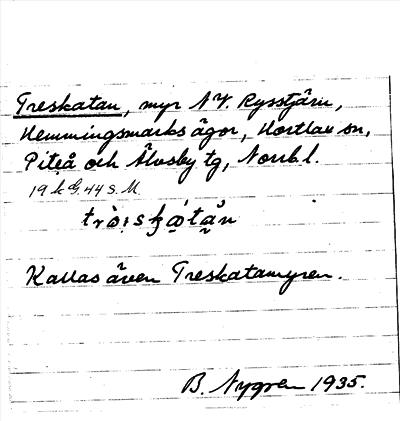 Treskatan, myr NV. Rysstjärn,
Hemmingsmarks ägor, Hortlax sn,
Piteå och Älvsby tg, Norrb.l.
19 k G. 44 S. M.
Kallas även Treskatamyren.
B. Nygren 1935.